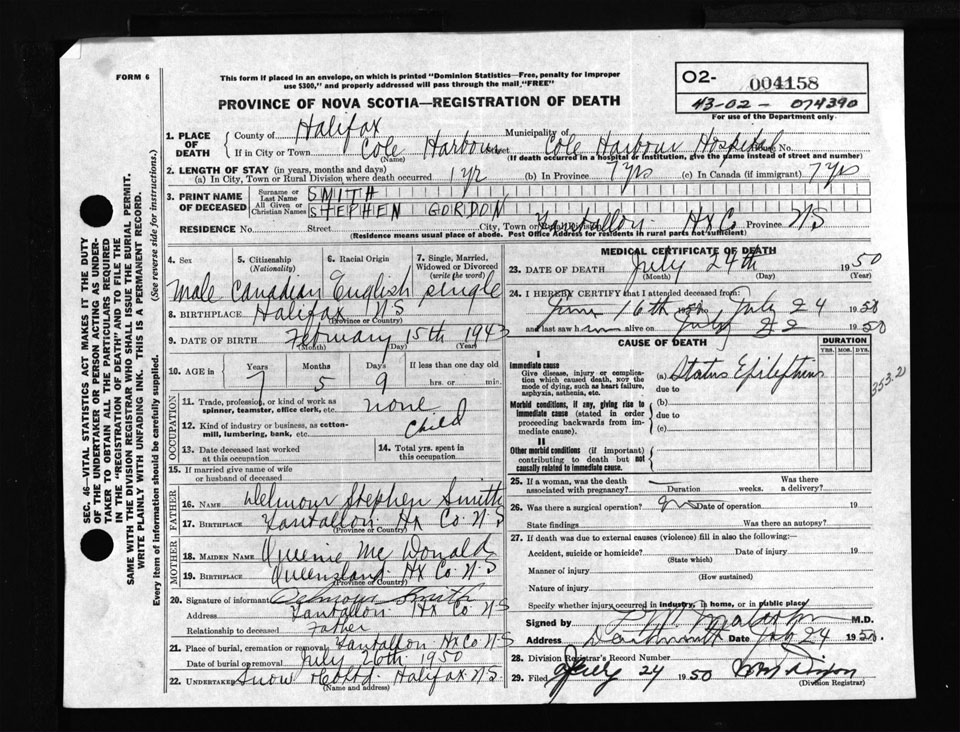 FORM 6
This form if placed in an envelope, on which is printed "Dominion Statistics—Free, penalty for improper
use $300," and properly addressed will pass through the mail "FREE"
PROVINCE OF NOVA SCOTIA—REGISTRATION OF DEATH
O2- 004158
43-02-074390
For use of the Department only
1. PLACE OF DEATH
County of Halifax Municipality of
If in City or Town Cole Harbour Street Cole Harbour Hospital House No.
(Name) (If death occurred in a hospital or institution, give the name instead of street and number)
2. LENGTH OF STAY (in years, months and days)
(a) In City, Town or Rural Division where death occurred 1 yr (b) In Province 7 yrs (c) In Canada (if immigrant) 7 yrs
3. PRINT NAME OF DECEASED
Surname or Last Name SMITH
All Given or Christian Names STEPHEN GORDON
RESIDENCE No. Street City, Town or Rural Tantallon Hx Co Province N S
(Residence means usual place of abode. Post Office Address for residents in rural parts not sufficient)
4. Sex 5. Citizenship (Nationality) 6. Racial Origin 7. Single, Married, Widowed or Divorced (write the word)
Male Canadian English single
8. BIRTHPLACE Halifax N S
(Province or Country)
9. DATE OF BIRTH February 15th 1943
(Month) (Day) (Year)
10. AGE in Years Months Days If less than one day
7 5 9 hrs. or min.
OCCUPATION
11. Trade, profession, or kind of work as spinner, teamster, office clerk, etc. none
12. Kind of industry or business, as cotton-mill, lumbering, bank, etc. Child
13. Date deceased last worked at this occupation 14. Total yrs. spent in this occupation
15. If married give name of wife or husband of deceased
FATHER
16. NAME Delmour Stephen Smith
17. BIRTHPLACE Tantallon Hx Co. N.S
MOTHER
18. MAIDEN NAME Queenie Mc Donald
19. BIRTHPLACE Queensland Hx Co. N-S
(Province or Country)
20. Signature of informant Delmour Smith
Address Tantallon Hx Co N S
Relationship to deceased Father
21. Place of burial, cremation or removal Tantallon Hx Co N S
Date of burial or removal July 26th 1950
22. UNDERTAKER Snow Halifax N.S.
(Name and address)
MEDICAL CERTIFICATE OF DEATH
23. DATE OF DEATH July 24th 1950
(Month) (Day) (Year)
24. I HEREBY CERTIFY that I attended deceased from:
June 16th 1950 to July 24 1950
and last saw him alive on July 22 1950
CAUSE OF DEATH DURATION
YRS. MOS. DYS.
I
Immediate cause
Give disease, injury or complication which caused death, not the mode of dying, such as heart failure, asphyxia, asthenia, etc.
(a) Status Epilepticus 353.2
due to
Morbid conditions, if any, giving rise to immediate cause (stated in order proceeding backwards from immediate cause).
(b)
due to
(c)
II
Other morbid conditions (if important) contributing to death but not causally related to immediate cause.
25. If a woman, was the death associated with pregnancy? Duration weeks. Was there a delivery?
26. Was there a surgical operation? no Date of operation 19
State findings Was there an autopsy?
27. If death was due to external causes (violence) fill in also the following:
Accident, suicide or homicide? Date of injury 19
(State which)
Manner of injury
(How sustained)
Nature of injury
Specify whether injury occurred in industry, in home, or in public place
Signed by M.D.
Address Dartmouth Date July 24 1950.
28. Division Registrar's Record Number
29. Filed July 24 1950 Dixon
(Division Registrar)
SEC. 46—VITAL STATISTICS ACT MAKES IT THE DUTY
OF THE UNDERTAKER OR PERSON ACTING AS UNDER-
TAKER TO OBTAIN ALL THE PARTICULARS REQUIRED
IN THE "REGISTRATION OF DEATH" AND TO FILE THE
SAME WITH THE DIVISION REGISTRAR WHO SHALL ISSUE THE BURIAL PERMIT.
WRITE PLAINLY WITH UNFADING INK. THIS IS A PERMANENT RECORD.
Every item of information should be carefully supplied. (See reverse side for instructions.)